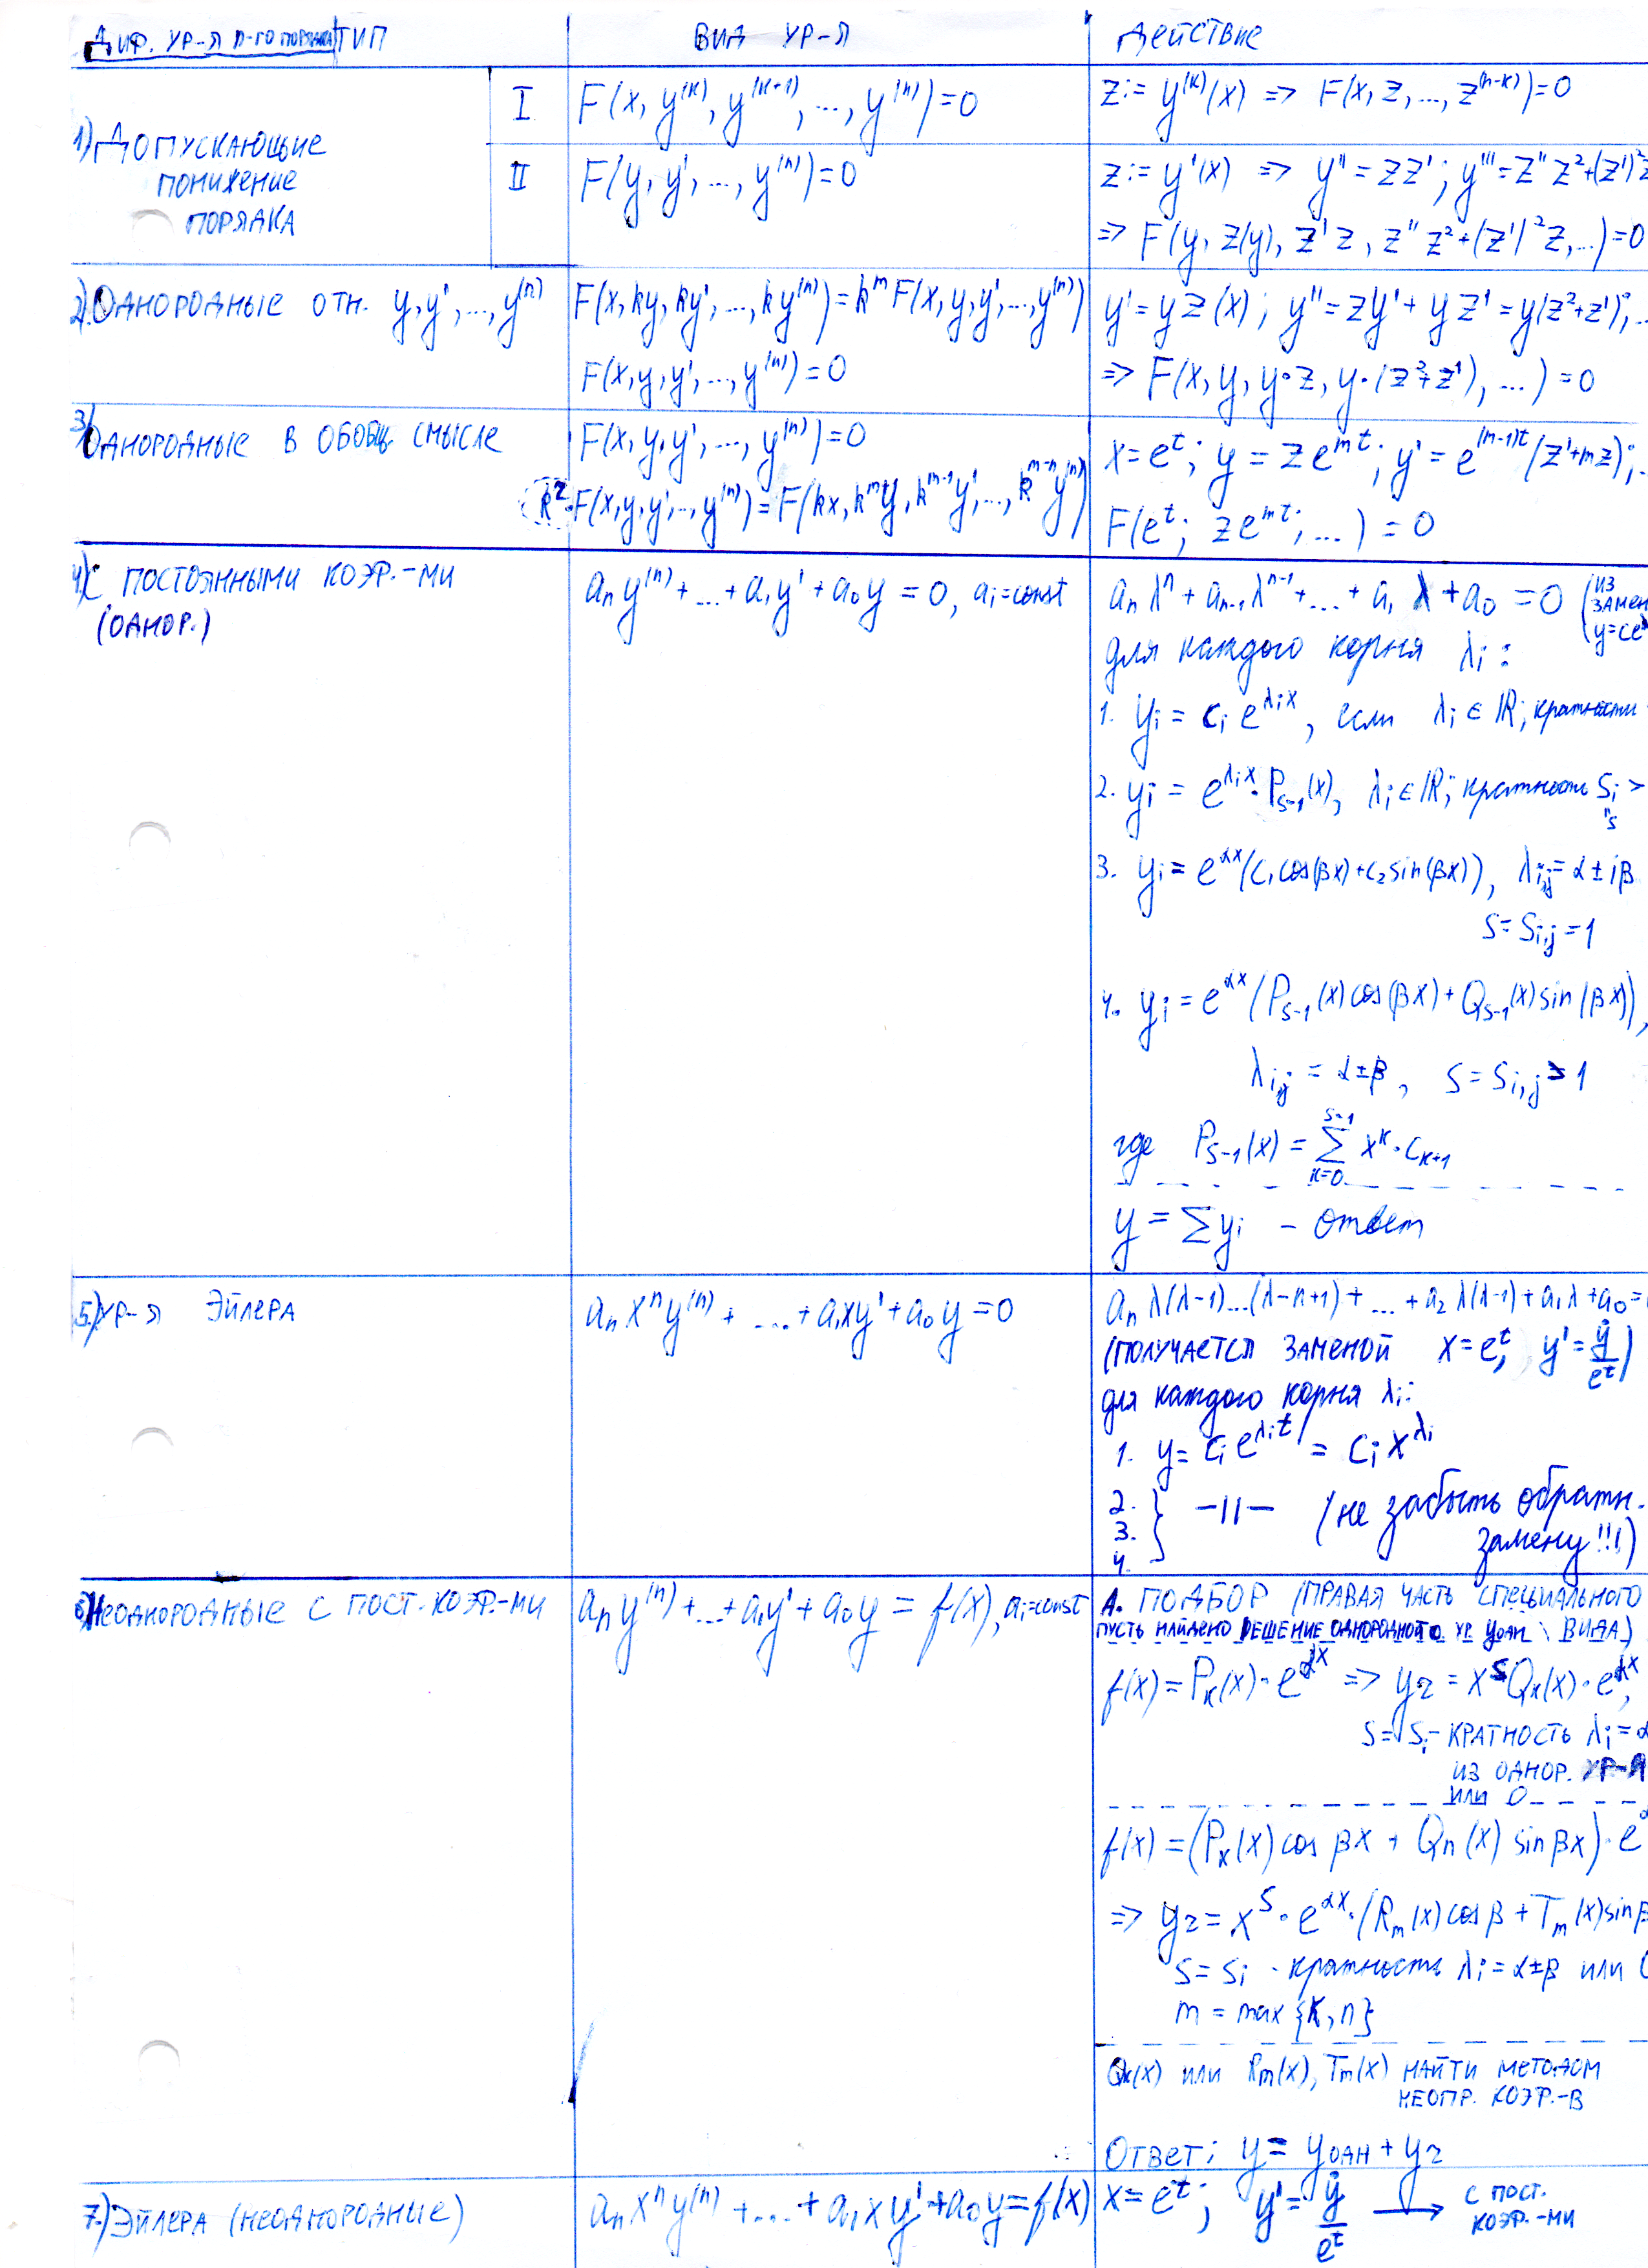 ДИФ. УР-Я n-ГО ПОРЯДКА ТИП
ВИД УР-Я
Действие
1) ДОПУСКАЮЩИЕ
ПОНИЖЕНИЕ
ПОРЯДКА
I
F(x, y^(k), y^(k+1), ..., y^(n)) = 0
z := y^(k)(x) => F(x, z, ..., z^(n-k)) = 0
II
F(y, y', ..., y^(n)) = 0
z := y'(x) => y'' = zz'; y''' = z''z² + (z')²z
=> F(y, z(y), z'z, z''z² + (z')²z, ...) = 0
2) ОДНОРОДНЫЕ ОТН. y, y', ..., y^(n)
F(x, ky, ky', ..., ky^(n)) = k^m F(x, y, y', ..., y^(n))
F(x, y, y', ..., y^(n)) = 0
y' = yz(x); y'' = zy' + yz' = y(z² + z'); ..
=> F(x, y, y·z, y·(z² + z'), ...) = 0
3) ОДНОРОДНЫЕ В ОБОБЩ. СМЫСЛЕ
F(x, y, y', ..., y^(n)) = 0
k^z · F(x, y, y', ..., y^(n)) = F(kx, k^m y, k^(m-1) y', ..., k^(m-n) y^(n))
x = e^t; y = z e^(mt); y' = e^((m-1)t) (z' + mz); ..
F(e^t; z e^(mt); ...) = 0
4) С ПОСТОЯННЫМИ КОЭФ.-МИ
(ОДНОР.)
a_n y^(n) + ... + a_1 y' + a_0 y = 0, a_i = const
a_n λ^n + a_(n-1) λ^(n-1) + ... + a_1 λ + a_0 = 0 (ИЗ
ЗАМЕН
y = ce^λ
для каждого корня λ_i :
1. y_i = c_i e^(λ_i x), если λ_i ∈ ℝ; кратности
2. y_i = e^(λ_i x) · P_(s-1)(x), λ_i ∈ ℝ; кратность S_i >
" s
3. y_i = e^(αx) (c_1 cos(βx) + c_2 sin(βx)), λ_(i,j) = α ± iβ
s = S_(i,j) = 1
4. y_i = e^(αx) (P_(s-1)(x) cos(βx) + Q_(s-1)(x) sin(βx)),
λ_(i,j) = α ± β, s = S_(i,j) > 1
где P_(s-1)(x) = Σ_(k=0)^(s-1) x^k · c_(k+1)
y = Σ y_i - ответ
5) УР-Я ЭЙЛЕРА
a_n x^n y^(n) + ... + a_1 x y' + a_0 y = 0
a_n λ(λ-1)...(λ-n+1) + ... + a_2 λ(λ-1) + a_1 λ + a_0 =
(ПОЛУЧАЕТСЯ ЗАМЕНОЙ x = e^t, y' = ẏ/e^t)
для каждого корня λ_i:
1. y = c_i e^(λ_i t) = c_i x^(λ_i)
2.
3. } -||- (не забыть обратн.
4. замену!!!)
6) НЕОДНОРОДНЫЕ С ПОСТ. КОЭФ.-МИ
a_n y^(n) + ... + a_1 y' + a_0 y = f(x), a_i = const
А. ПОДБОР (ПРАВАЯ ЧАСТЬ СПЕЦИАЛЬНОГО
ПУСТЬ НАЙДЕНО РЕШЕНИЕ ОДНОРОДНОГО УР. y_одн ВИДА)
f(x) = P_k(x) · e^(αx) => y_2 = x^s Q_k(x) · e^(αx),
s = S_i - КРАТНОСТЬ λ_i = α
ИЗ ОДНОР. УР-Я
ИЛИ 0
f(x) = (P_k(x) cos βx + Q_n(x) sin βx) · e^α
=> y_2 = x^s · e^(αx) · (R_m(x) cos β + T_m(x) sin β
s = S_i - кратность λ_i = α ± β или 0
m = max {k, n}
Q_k(x) ИЛИ R_m(x), T_m(x) НАЙТИ МЕТОДОМ
НЕОПР. КОЭФ.-В
ОТВЕТ: y = y_одн + y_2
7) ЭЙЛЕРА (НЕОДНОРОДНЫЕ)
a_n x^n y^(n) + ... + a_1 x y' + a_0 y = f(x)
x = e^t; y' = ẏ/e^t → С ПОСТ.
КОЭФ.-МИ